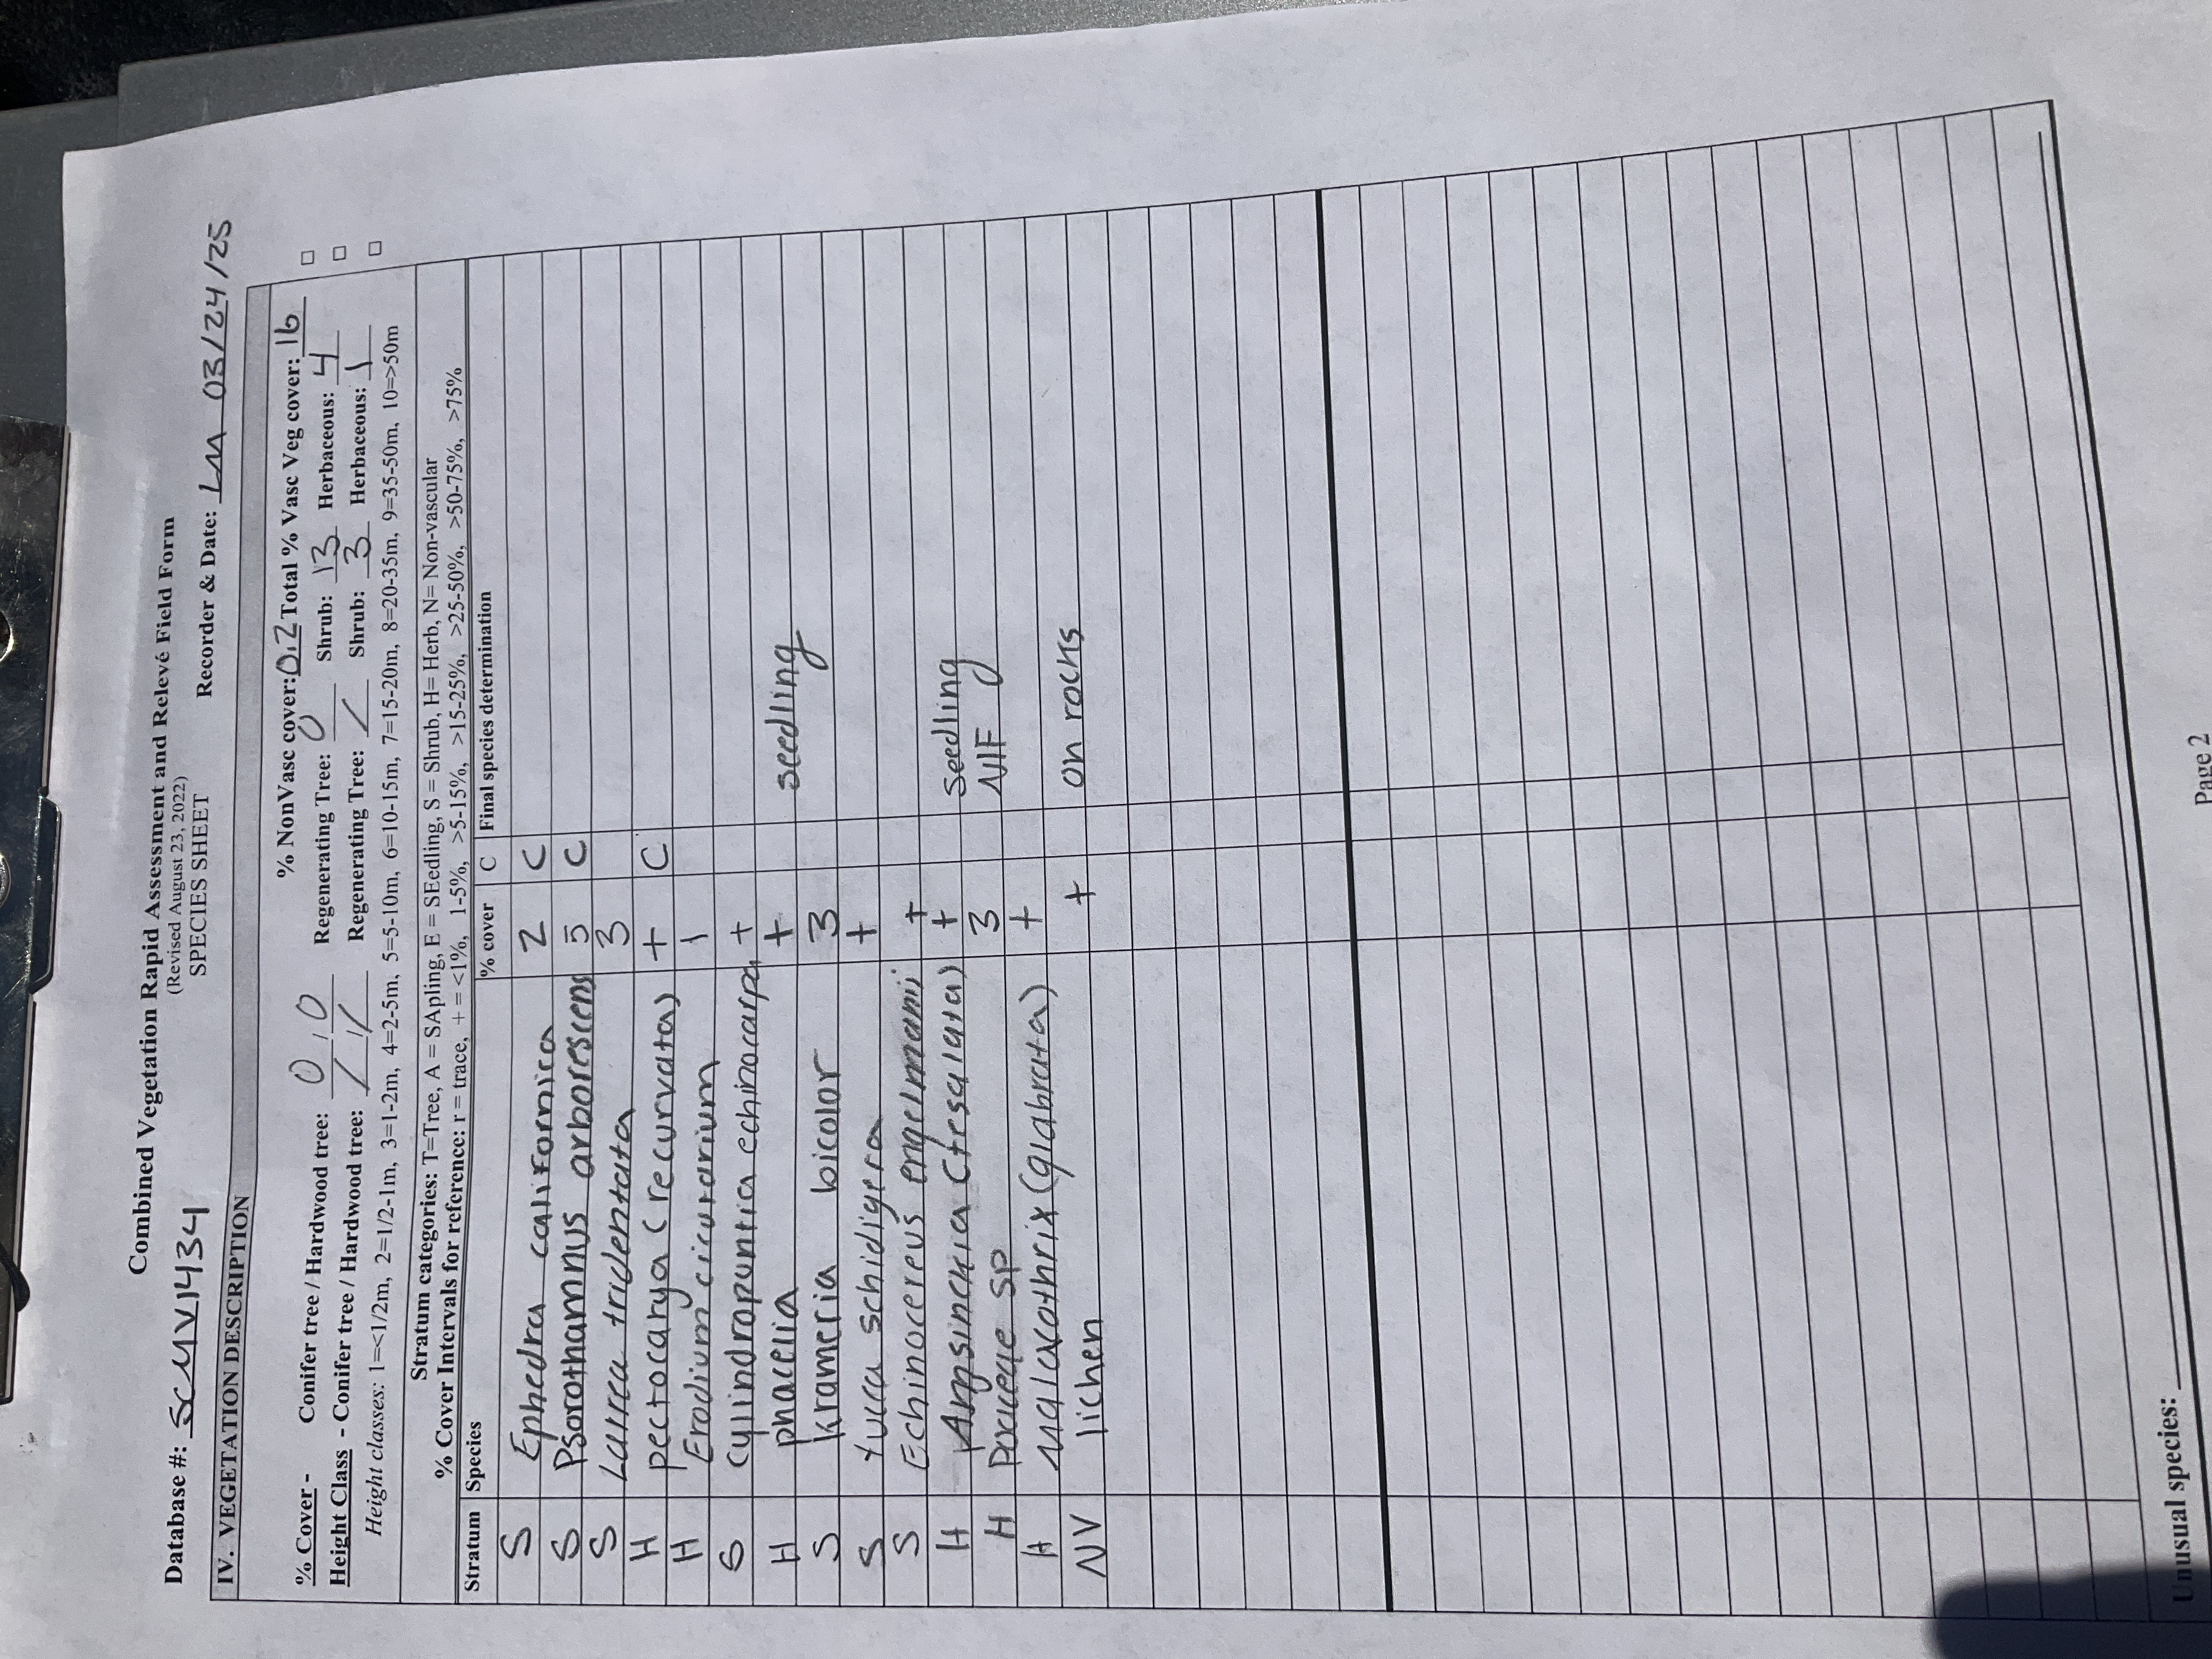 Combined Vegetation Rapid Assessment and Relevé Field Form
(Revised August 23, 2022)
SPECIES SHEET
Database #: SCMV1434 Recorder & Date: LM 03/24/25
IV. VEGETATION DESCRIPTION
% NonVasc cover: 0.2 Total % Vasc Veg cover: 16 □
% Cover - Conifer tree / Hardwood tree: 0 / 0 Regenerating Tree: 0 Shrub: 13 Herbaceous: 4 □
Height Class - Conifer tree / Hardwood tree: / / / Regenerating Tree: / Shrub: 3 Herbaceous: 1 □
Height classes: 1=<1/2m, 2=1/2-1m, 3=1-2m, 4=2-5m, 5=5-10m, 6=10-15m, 7=15-20m, 8=20-35m, 9=35-50m, 10=>50m
Stratum categories: T=Tree, A = SApling, E = SEedling, S = Shrub, H= Herb, N= Non-vascular
% Cover Intervals for reference: r = trace, + = <1%, 1-5%, >5-15%, >15-25%, >25-50%, >50-75%, >75%
Stratum Species % cover C Final species determination
S Ephedra californica 2 C
S Psorothamnus arborescens 5 C
S Larrea tridentata 3
H pectocarya (recurvata) + C
H Erodium cicutarium 1
S cylindropuntia echinocarpa +
H phacelia + seedling
S krameria bicolor 3
S Yucca schidigera +
S Echinocereus engelmanii +
H Amsinckia (tesalata) + seedling
H Poaceae SP 3 NIF
H Malacothrix (glabrata) +
NV lichen + on rocks
Unusual species:
Page 2